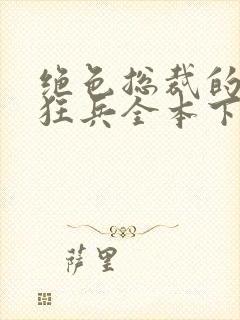 绝色总裁的
狂兵全本下
萨里